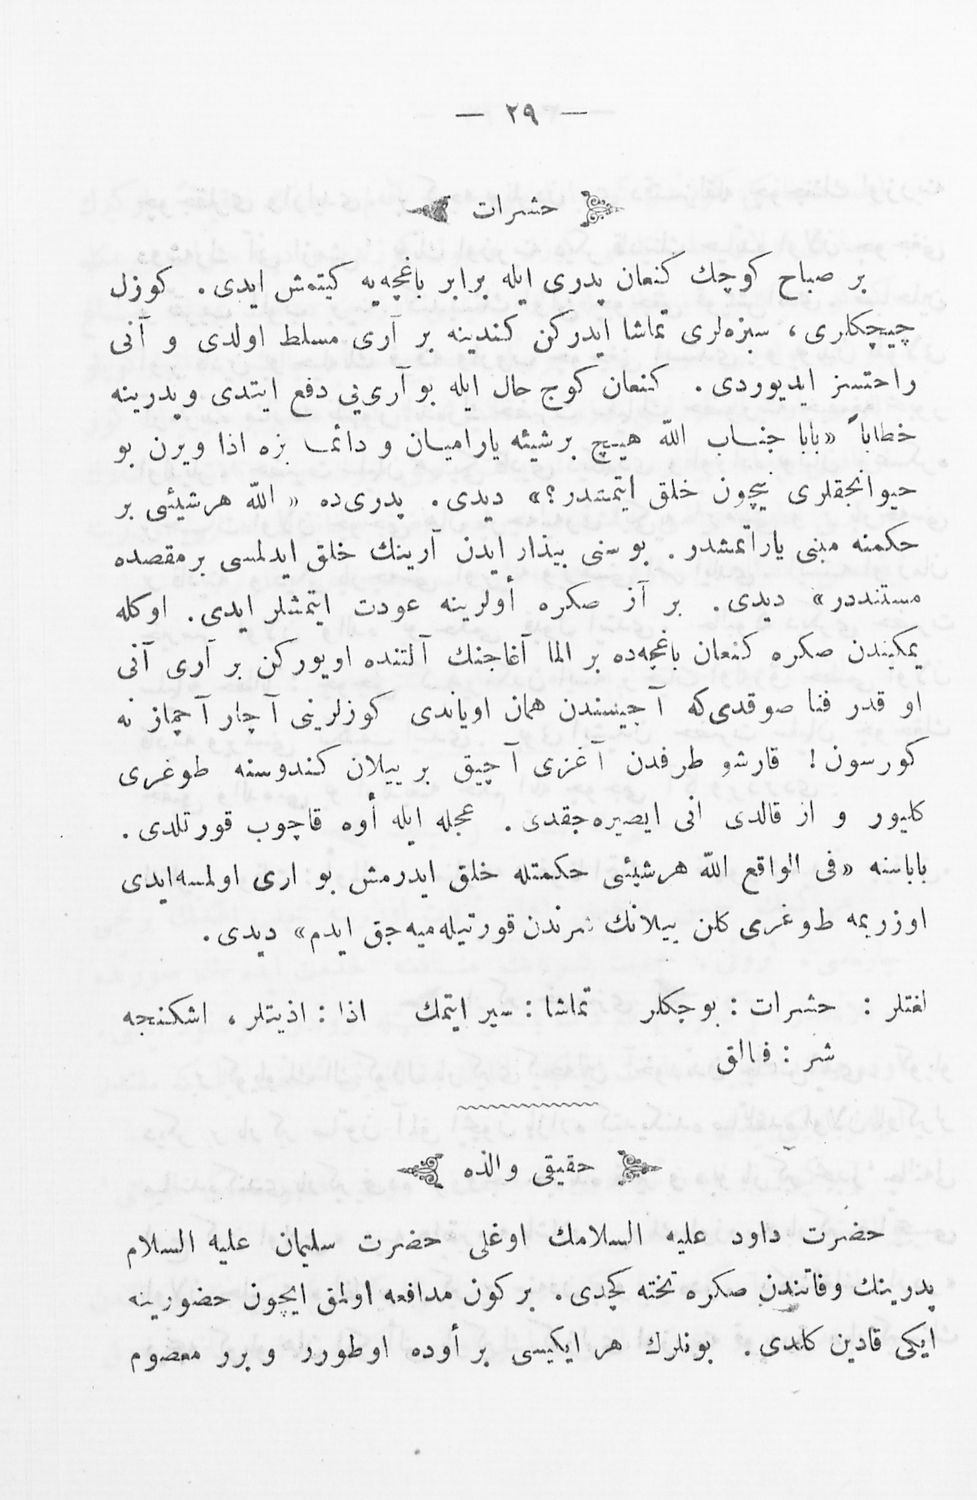 — ٢٩ —
حشرات
بر صباح كوچك كنعان پدرى ايله برابر باغچه‌يه كيتمش ايدى. كوزل
چيچكلرى ، سبزه‌لرى تماشا ايدركن كندينه بر آرى مسلط اولدى و آنى
راحتسز ايديوردى. كنعان كوج حال ايله بو آرى‌يي دفع ايتدى و پدرينه
خطاباً «بابا جناب الله هيچ برشيئه ياراميان و دائما بزه اذا ويرن بو
حيوانجقلرى نيچون خلق ايتمشدر؟» ديدى. پدرى‌ده « الله هرشيئى بر
حكمنه مبنى ياراتمشدر. بو سنى بيذار ايدن آرينك خلق ايدلمسى بر مقصده
مستنددر» ديدى. بر آز صكره أولرينه عودت ايتمشلر ايدى. اوكله
يمكيندن صكره كنعان باغچه‌ده بر الما آغاجنك آلتنده اويوركن بر آرى آنى
او قدر فنا صوقدى‌كه آجيسندن همان اوياندى كوزلريني آچار آچماز نه
كورسون! قارشو طرفدن آغزى آچيق بر ييلان كندوسنه طوغرى
كليور و از قالدى انى ايصيره‌جقدى. عجله ايله أوه قاچوب قورتلدى.
باباسنه «فى الواقع الله هرشيئى حكمتله خلق ايدرمش بو ارى اولمسه‌ايدى
اوزريمه طوغرى كلن ييلانك شرندن قورتيله‌ميه‌جق ايدم» ديدى.
لغتلر : حشرات : بوجكلر تماشا : سير ايتمك اذا : اذيتلر ، اشكنجه
شر : فنالق
حقيقى والده
حضرت داود عليه السلامك اوغلى حضرت سليمان عليه السلام
پدرينك وفاتندن صكره تخته كچدى. بركون مدافعه اولمق ايچون حضورينه
ايكى قادين كلدى. بونلرك هر ايكيسى بر أوده اوطورر و برر معصوم